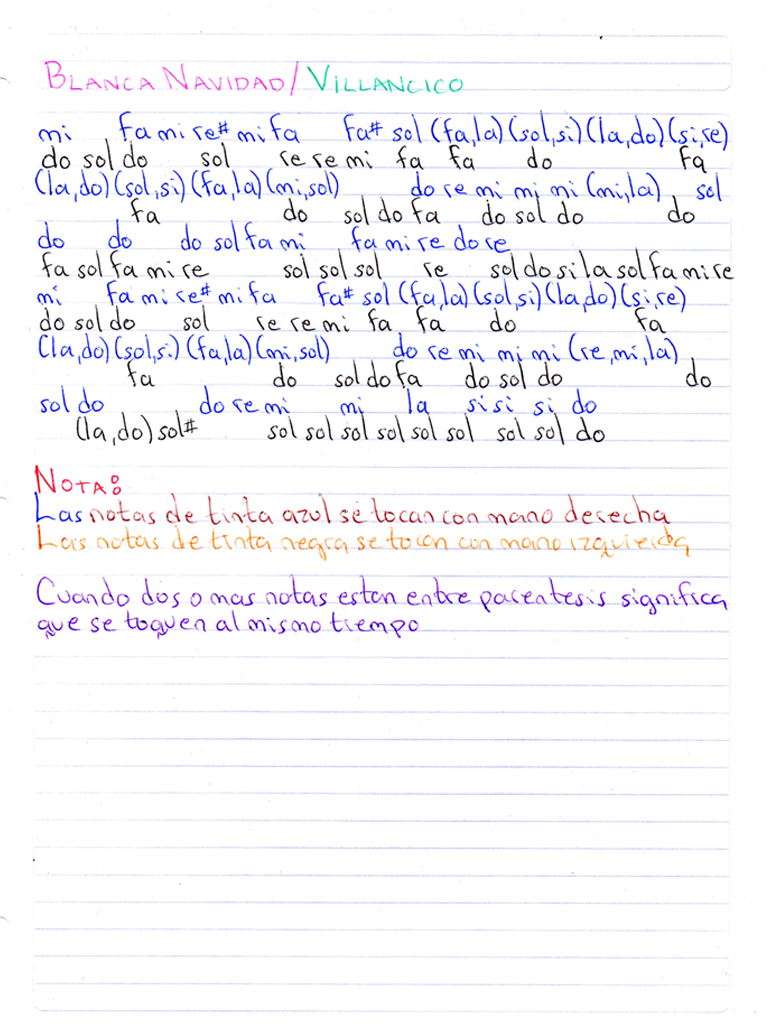 BLANCA NAVIDAD/VILLANCICO
mi fa mi re# mi fa fa# sol (fa,la) (sol,si) (la,do) (si,re)
do sol do sol re re mi fa fa do fa
(la,do) (sol,si) (fa,la) (mi,sol) do re mi mi mi (mi,la) sol
fa do sol do fa do sol do do
do do do sol fa mi fa mi re do re
fa sol fa mi re sol sol sol re sol do si la sol fa mi re
mi fa mi re# mi fa fa# sol (fa,la) (sol,si) (la,do) (si,re)
do sol do sol re re mi fa fa do fa
(la,do) (sol,si) (fa,la) (mi,sol) do re mi mi mi (re,mi,la)
fa do sol do fa do sol do do
sol do do re mi mi la si si si do
(la,do) sol# sol sol sol sol sol sol sol sol do
NOTA:
Las notas de tinta azul se tocan con mano derecha
Las notas de tinta negra se tocan con mano izquierda
Cuando dos o mas notas estan entre parentesis significa
que se toquen al mismo tiempo